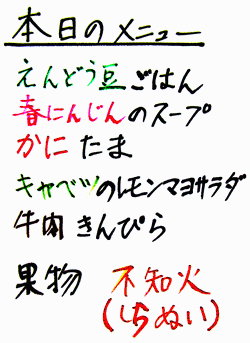 本日のメニュー
えんどう豆ごはん
春にんじんのスープ
かにたま
キャベツのレモンマヨサラダ
牛肉きんぴら
果物 不知火
(しらぬい)